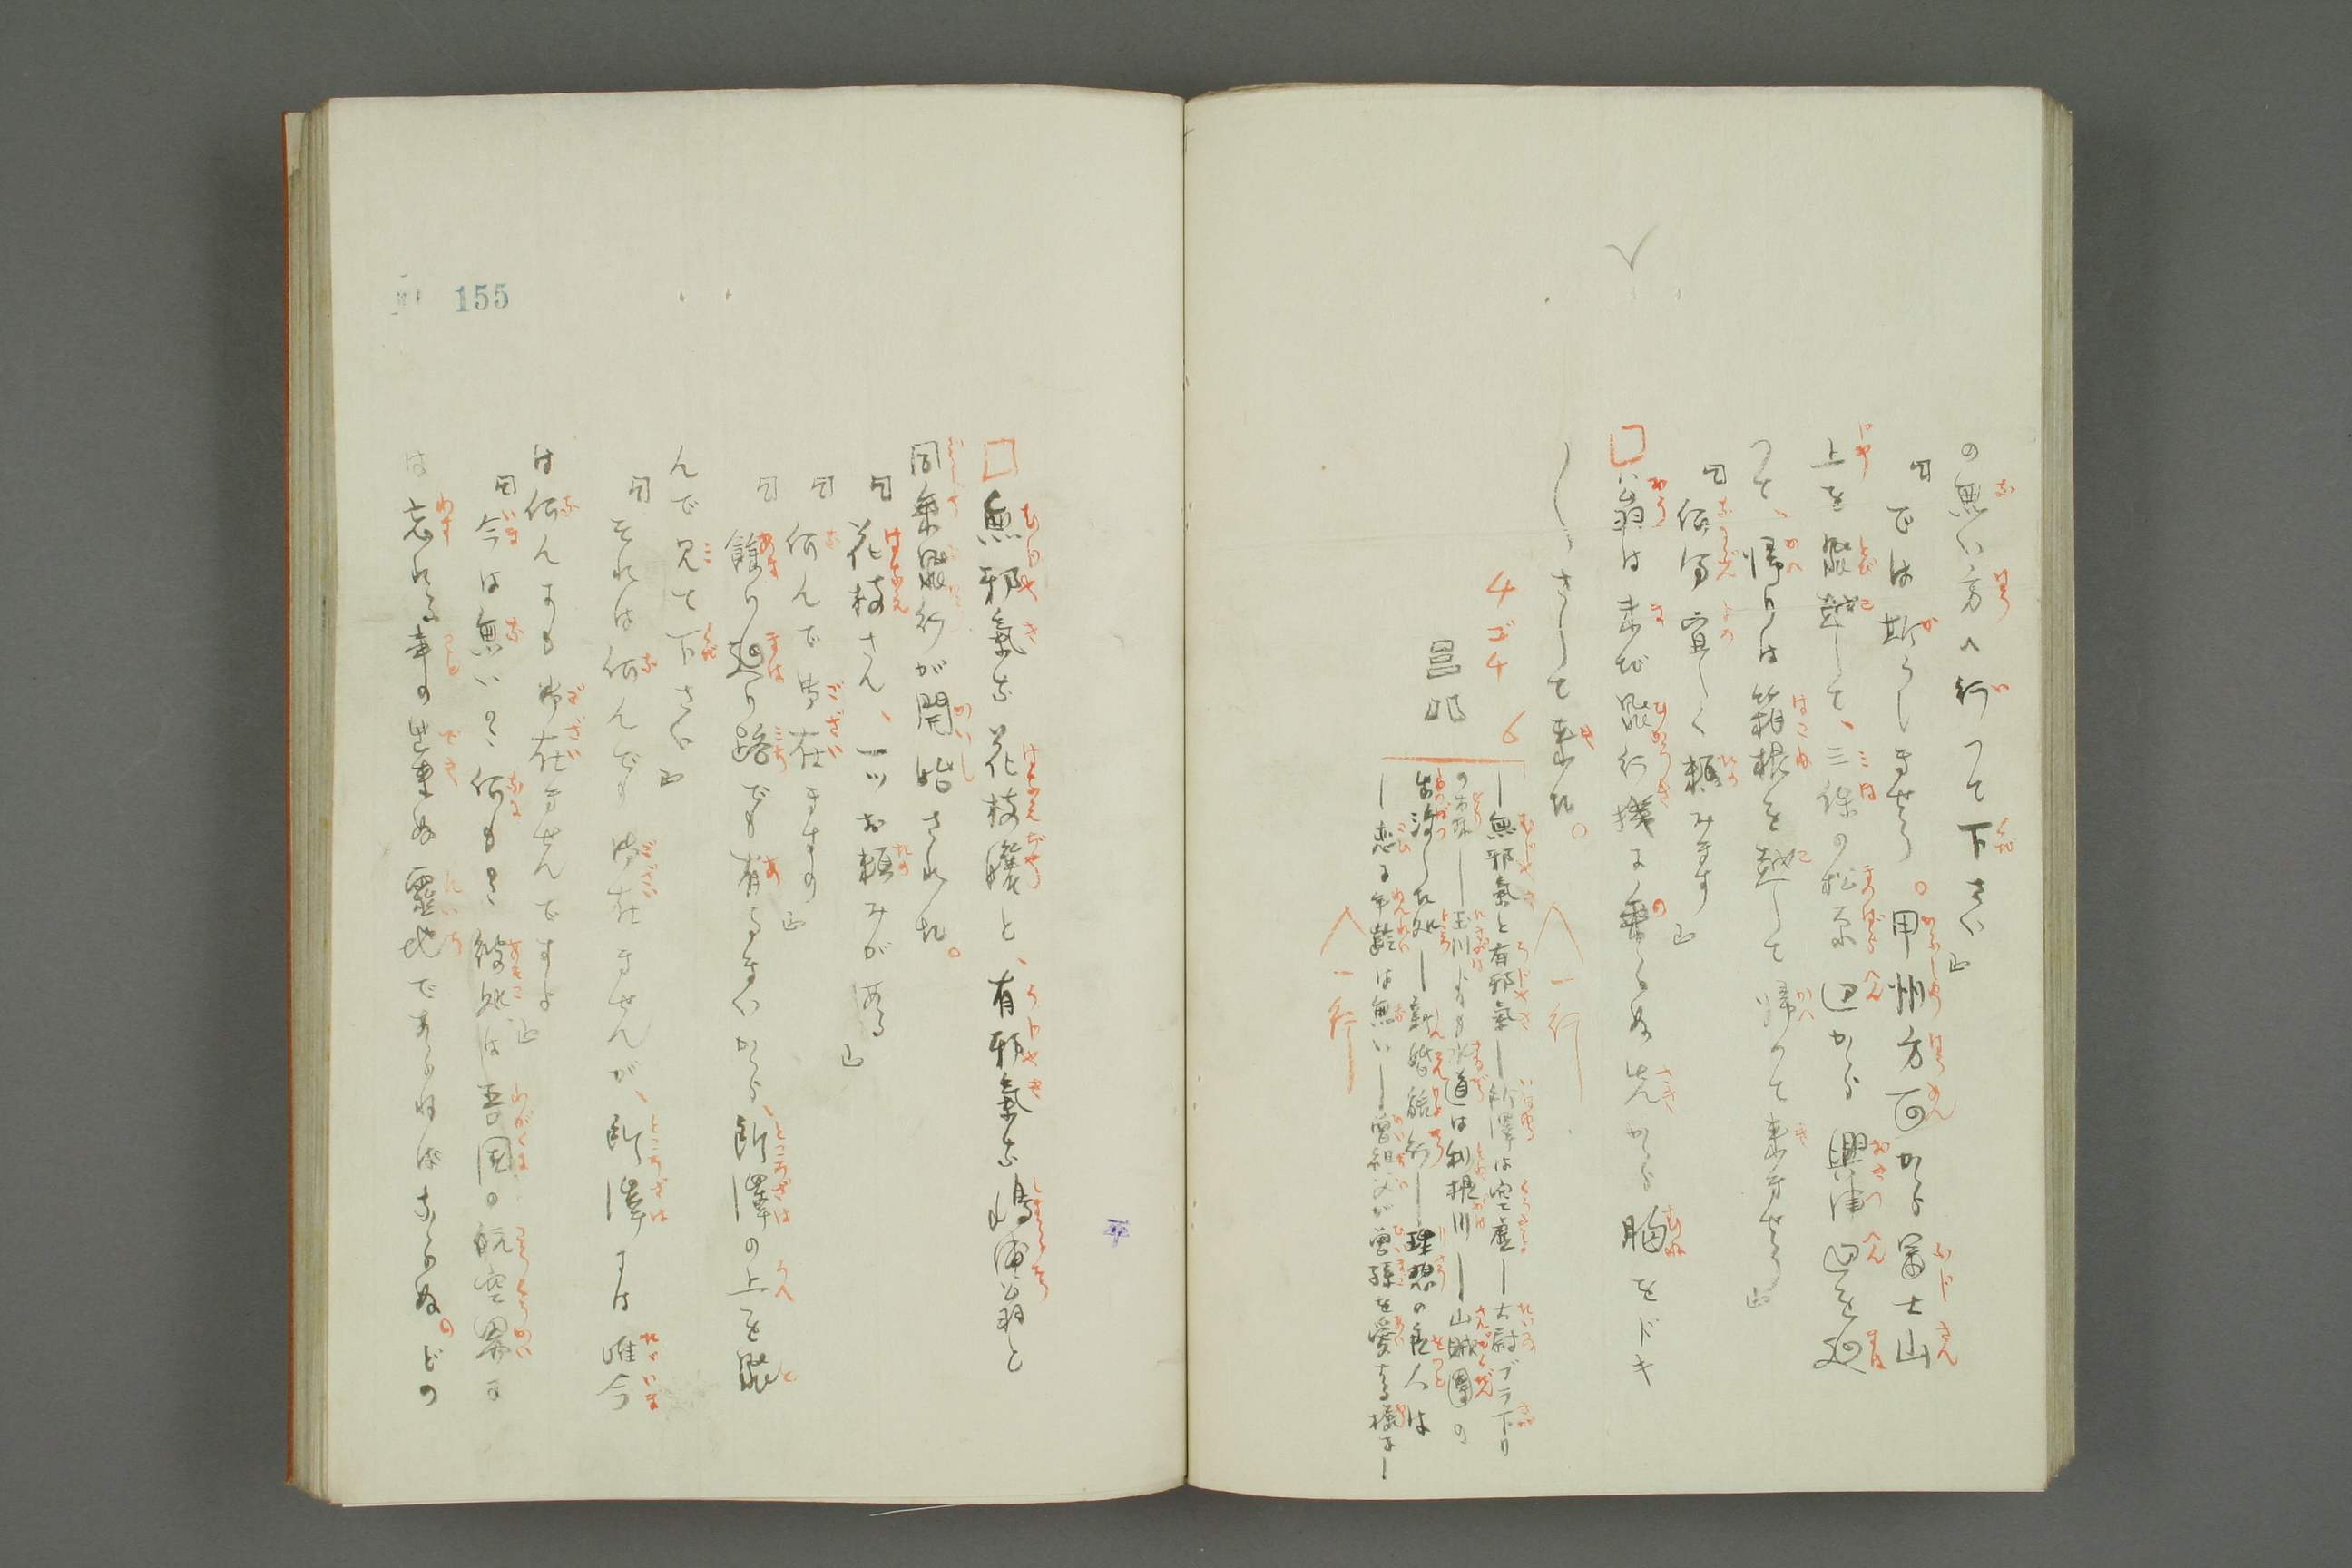 の無い方へ行つて下さい』
『では斯うしませう。甲州方面から冨士山
上を飛越して、三保の松原辺から興津辺を廻
つて、帰りは箱根を越して帰つて来ませう』
『何分宜しく頼みます』
翁は未だ飛行機に乗らぬ先から胸をドキ
〱さして来た。
4ゴ4 6
一行
―無邪氣と有邪氣―所澤は空虚―大尉ブラ下り
の お 玉川 水道は利根川―山賊團の
した処―新婚旅行―理想の良人は
―恋に年齢は無い―曽祖父が曽孫を愛する様に―
一行
平
無邪氣な花枝孃と、有邪氣な嶋浦翁と
同乗飛行が開始された。
『花枝さん、一ツお頼みがある』
『何んで御在ますの』
『餘り廻り路でも有るまいから、所澤の上を飛
んで見て下さい』
『それは何んでも御在ませんが、所澤には唯今
は何んにも御在ませんですよ』
『今は無いの、何も 彼処は吾国の航空界に
は忘れる事の出来ぬ靈地であらねばならぬ。どの
155